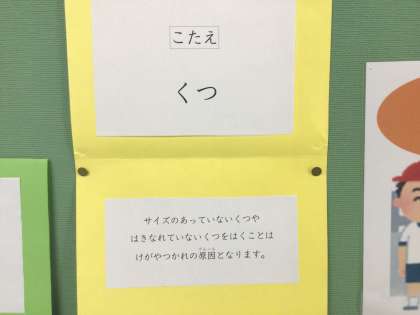 こたえ
くつ
サイズのあっていないくつや
はきなれていないくつをはくことは
けがやつかれの原因となります。